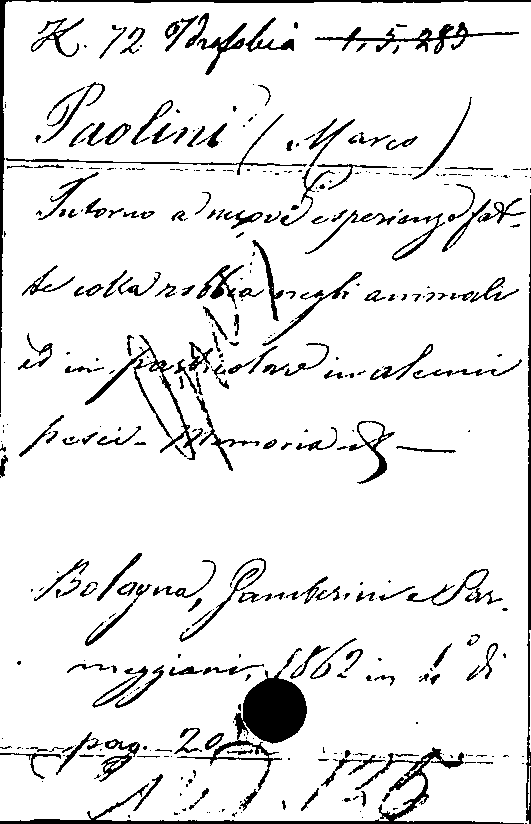 K. 72 Idrofobia 1, 5, 283
Paolini (Marco)
Intorno a nuove esperienze fat-
te colla robbia negli animali
ed in particolare in alcuni
pesci - Memoria
Bolagna, Gamberini e Par-
meggiani, 1862 in 4° di
pag. 20